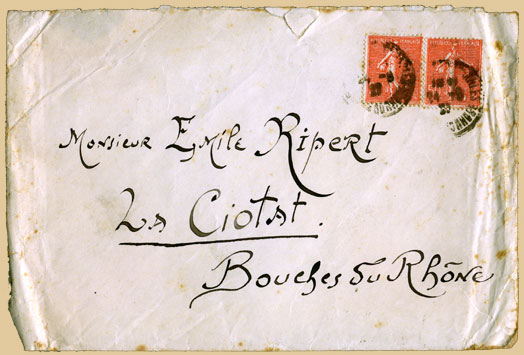 Monsieur Emile Ripert
La Ciotat.
Bouches du Rhône